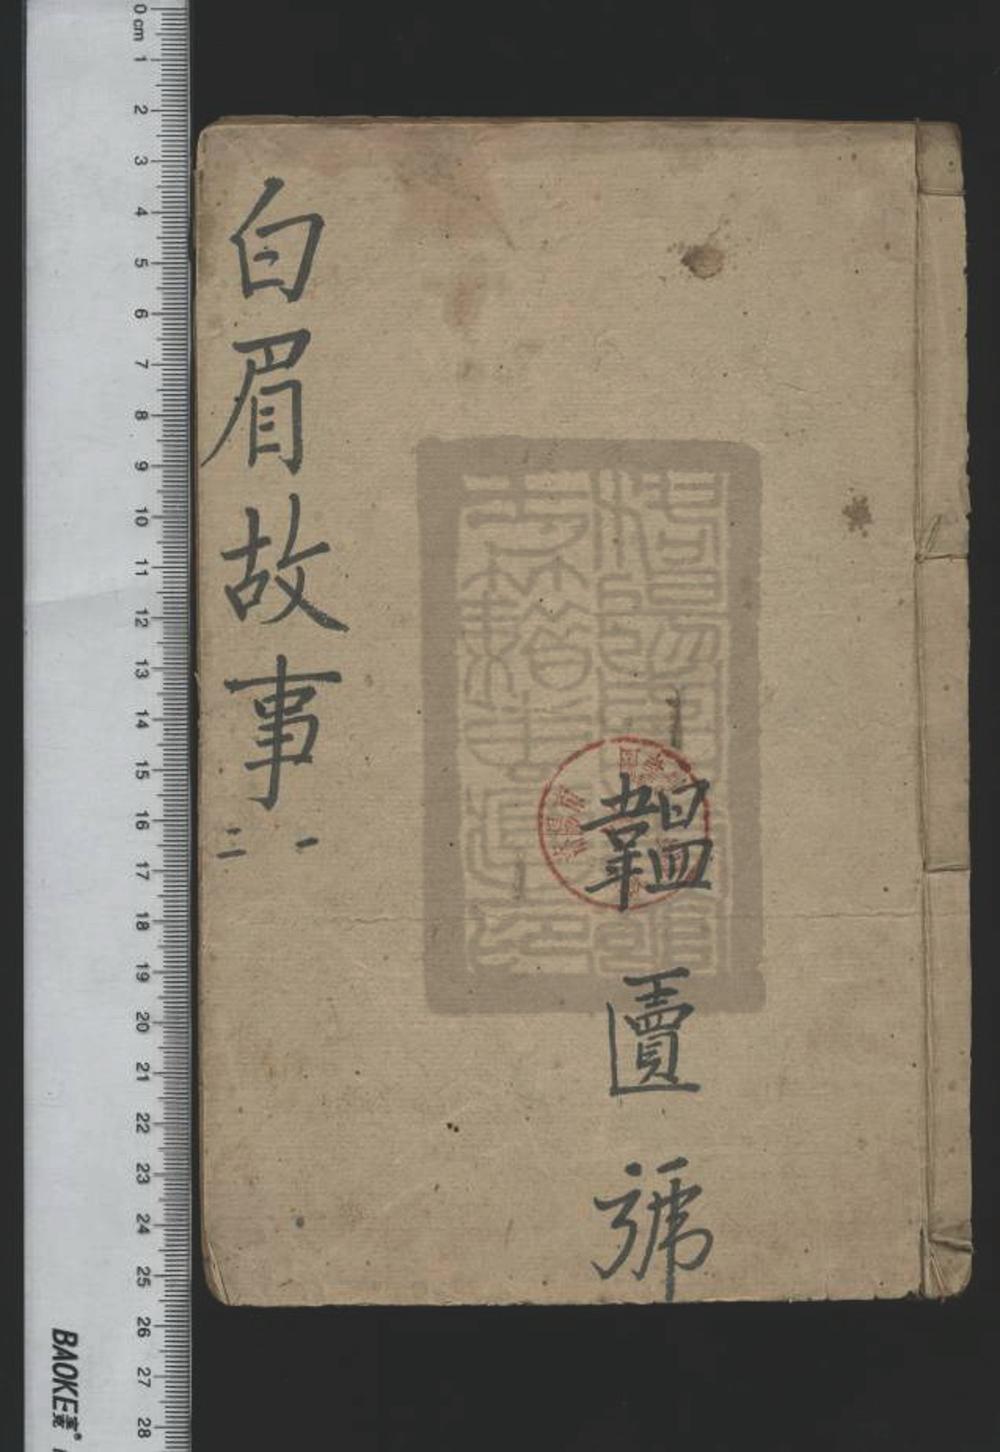 韞匵號
白眉故事
一
二
0 cm 1 2 3 4 5 6 7 8 9 10 11 12 13 14 15 16 17 18 19 20 21 22 23 24 25 26 27 28
BAOKE宝克®